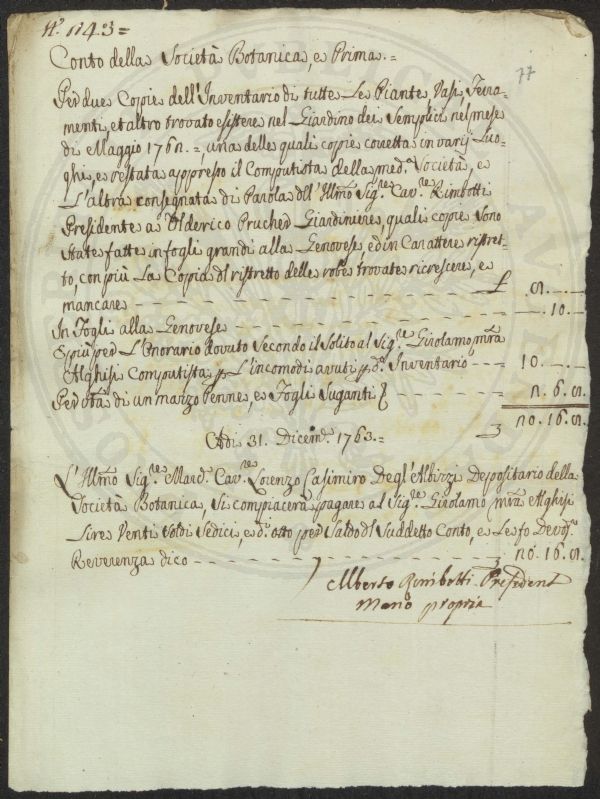 N.° 1143=
77
Conto della Società Botanica, e Prima.=
Per due Copie dell'Inventario di tutte Le Piante, Vasi, Ferra-
menti, et altro trovato esistere nel Giardino dei Semplici nel mese
di Maggio 176 =, una delle quali copie corretta in varij Luo-
ghi, e restata appresso il Computista della med.ª Società, e
L'altra consegnata di Parola dll' Ill.mo Sig.re Cav.re Rimbotti
Presidente a Olderico Prucher Giardiniere, quali copie sono
state fatte in fogli grandi alla Genovese, ed in Carattere ristret-
to, con più La Copia dl ristretto delle robe trovate ricrescere, e
mancare
In Fogli alla Genovese 10.
E più per L'Onorario dovuto Secondo il Solito al Sig.re Girolamo m̃ra
Alghisi Computista p L'incomodi avuti p d.° Inventario 10.
Per di un marzo Penne, e Fogli Suganti 6.
16.
Adi 31. Dicem.e 1763.=
L'Ill.mo Sig.re March. Cav.re Lorenzo Casimiro Degl'Albizzi Depositario della
Società Botanica, Si compiacerà pagare al Sig.re Girolamo m̃ra Alghisi
Lire Venti Soldi Sedici, e d. otto per Saldo dl Suddetto Conto, e Le fo Devot.
Reverenza dico 16.
Alberto Rimbotti President
Mano propria